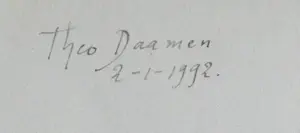 Theo Daamen
2-1-1992.